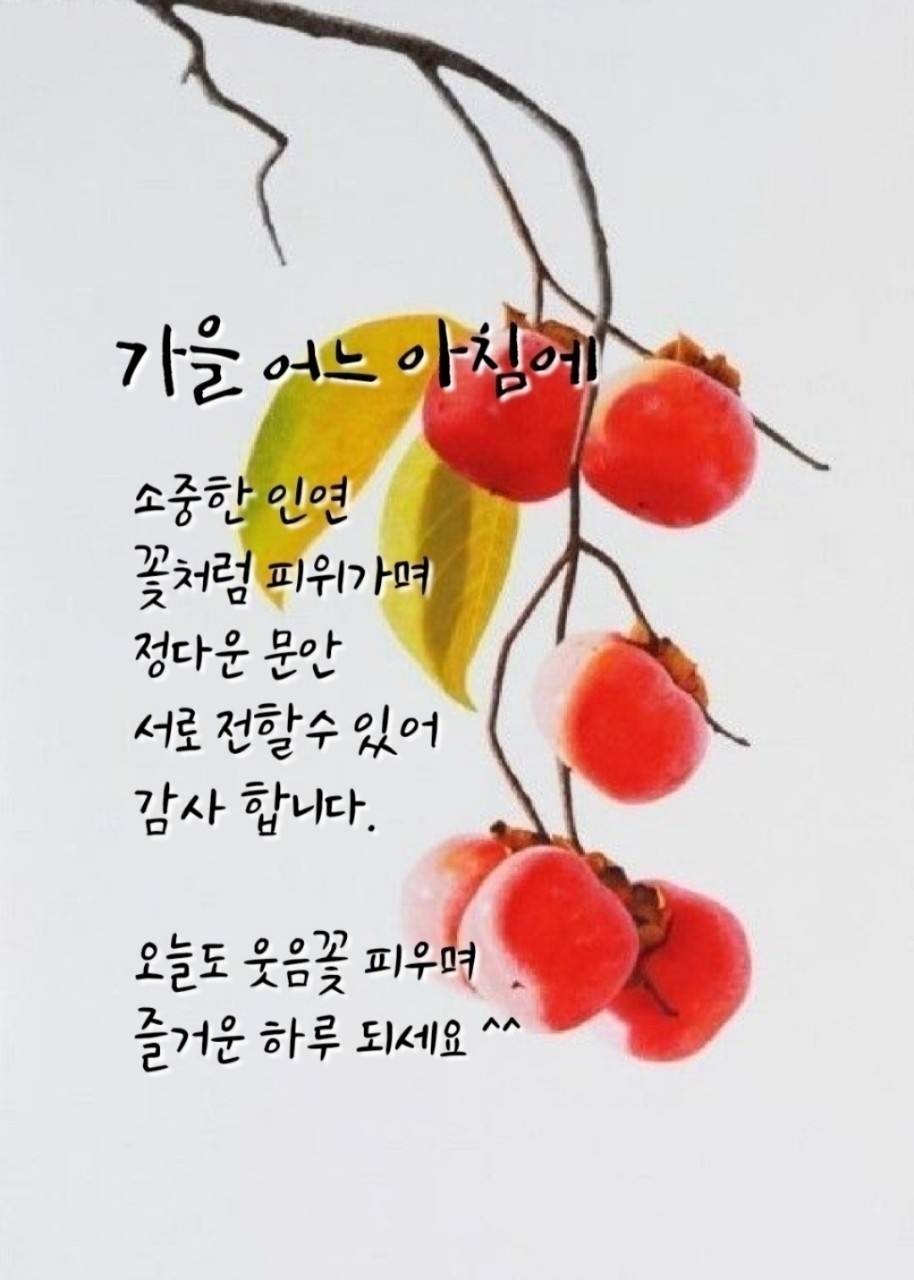 가을 어느 아침에
소중한 인연
꽃처럼 피워가며
정다운 문안
서로 전할수 있어
감사 합니다.
오늘도 웃음꽃 피우며
즐거운 하루 되세요 ^^